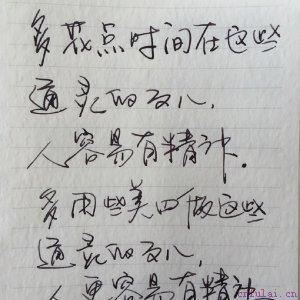 多花点时间在这些
通灵的事儿,
人容易有精神.
多用些美四做这些
通灵的事儿,
人更容易有精神
cnfulai.cn